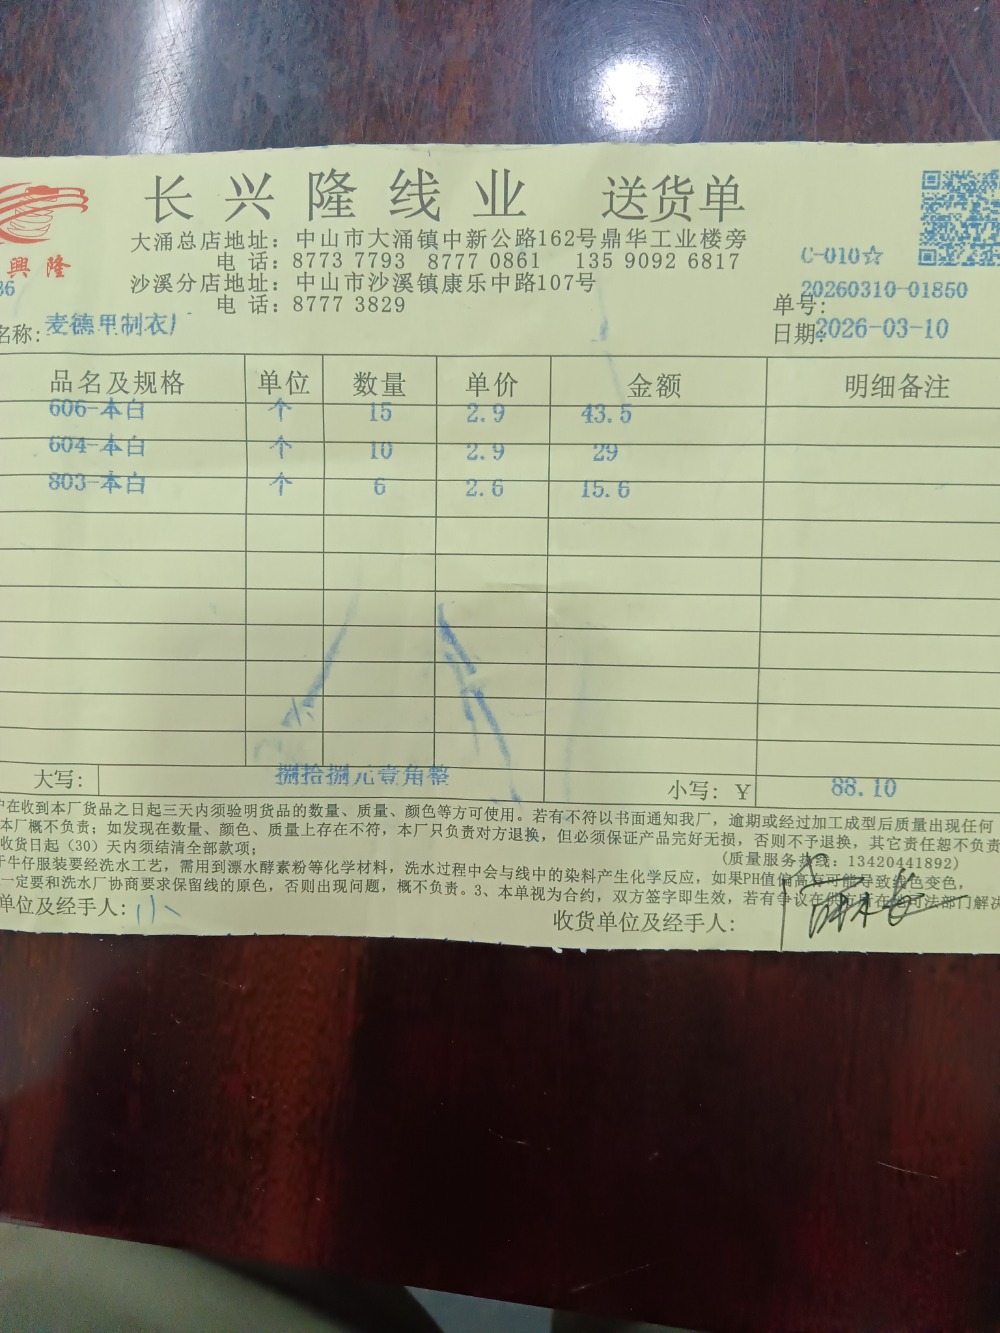 长兴隆线业 送货单
大涌总店地址：中山市大涌镇中新公路162号鼎华工业楼旁
电 话：8773 7793 8777 0861 135 9092 6817
沙溪分店地址：中山市沙溪镇康乐中路107号
电 话：8777 3829
興隆
36
C-010☆
单号：20260310-01850
名称：麦德甲制衣厂
日期：2026-03-10
品名及规格 单位 数量 单价 金额 明细备注
606-本白 个 15 2.9 43.5
604-本白 个 10 2.9 29
803-本白 个 6 2.6 15.6
大写：捌拾捌元壹角整 小写：￥88.10
户在收到本厂货品之日起三天内须验明货品的数量、质量、颜色等方可使用。若有不符以书面通知我厂，逾期或经过加工成型后质量出现任何
本厂概不负责；如发现在数量、颜色、质量上存在不符，本厂只负责对方退换，但必须保证产品完好无损，否则不予退换，其它责任恕不负责
收货日起（30）天内须结清全部款项；
(质量服务热线：13420441892)
于牛仔服装要经洗水工艺，需用到漂水酵素粉等化学材料，洗水过程中会与线中的染料产生化学反应，如果PH值偏高有可能导致线色变色，
一定要和洗水厂协商要求保留线的原色，否则出现问题，概不负责。3、本单视为合约，双方签字即生效，若有争议在供方所在地司法部门解决
单位及经手人：小
收货单位及经手人：